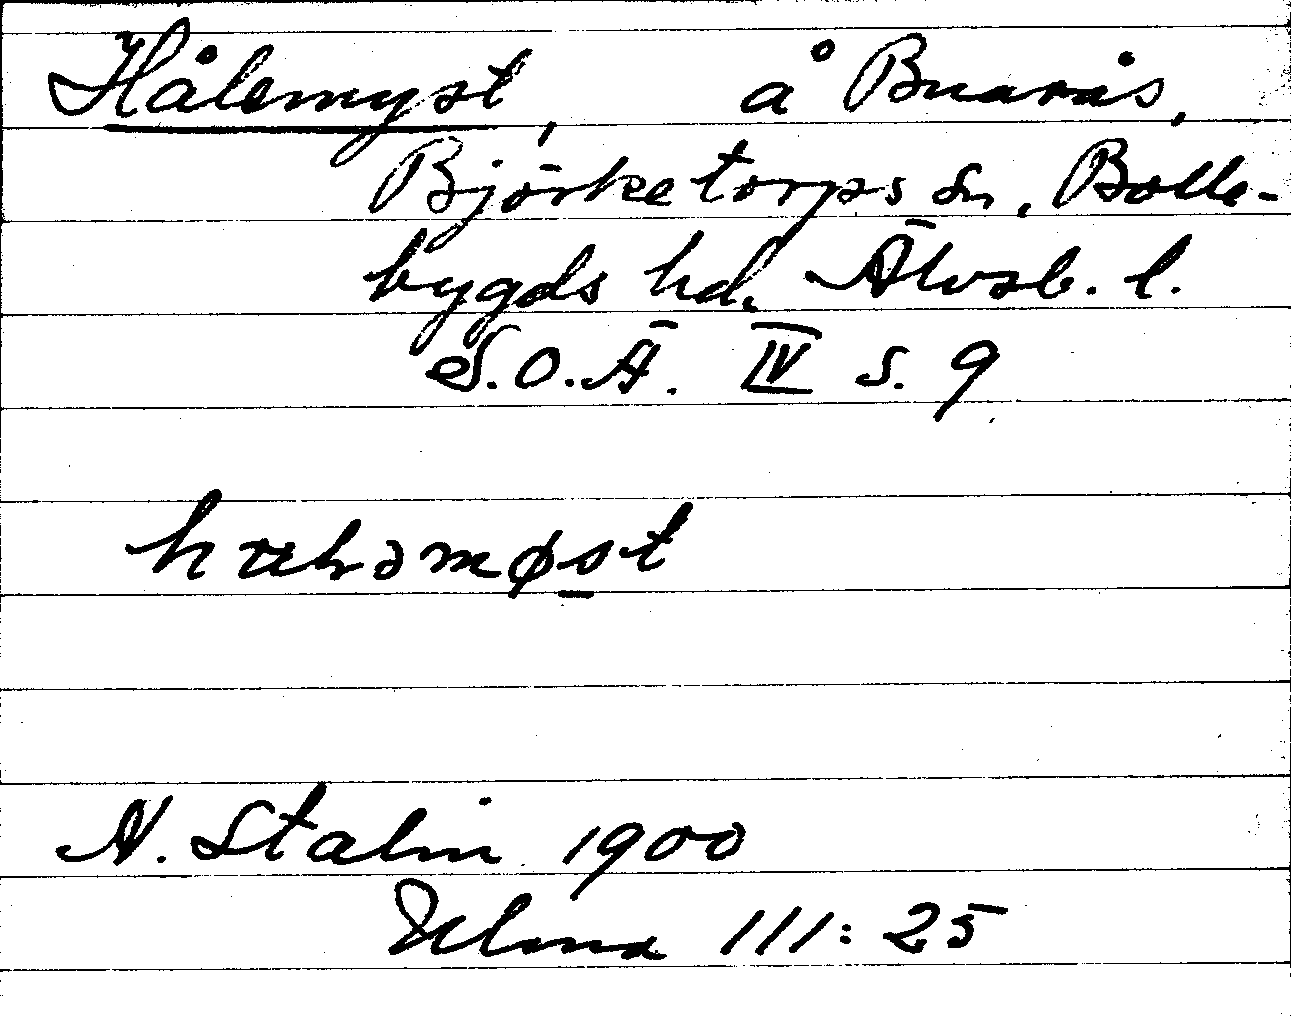 Hålemyst, å Buarås,
Björketorps sn, Bolle-
bygds hd. Älvsb. l.
S.O.Ä. IV s. 9
N. Stalin 1900
111:25